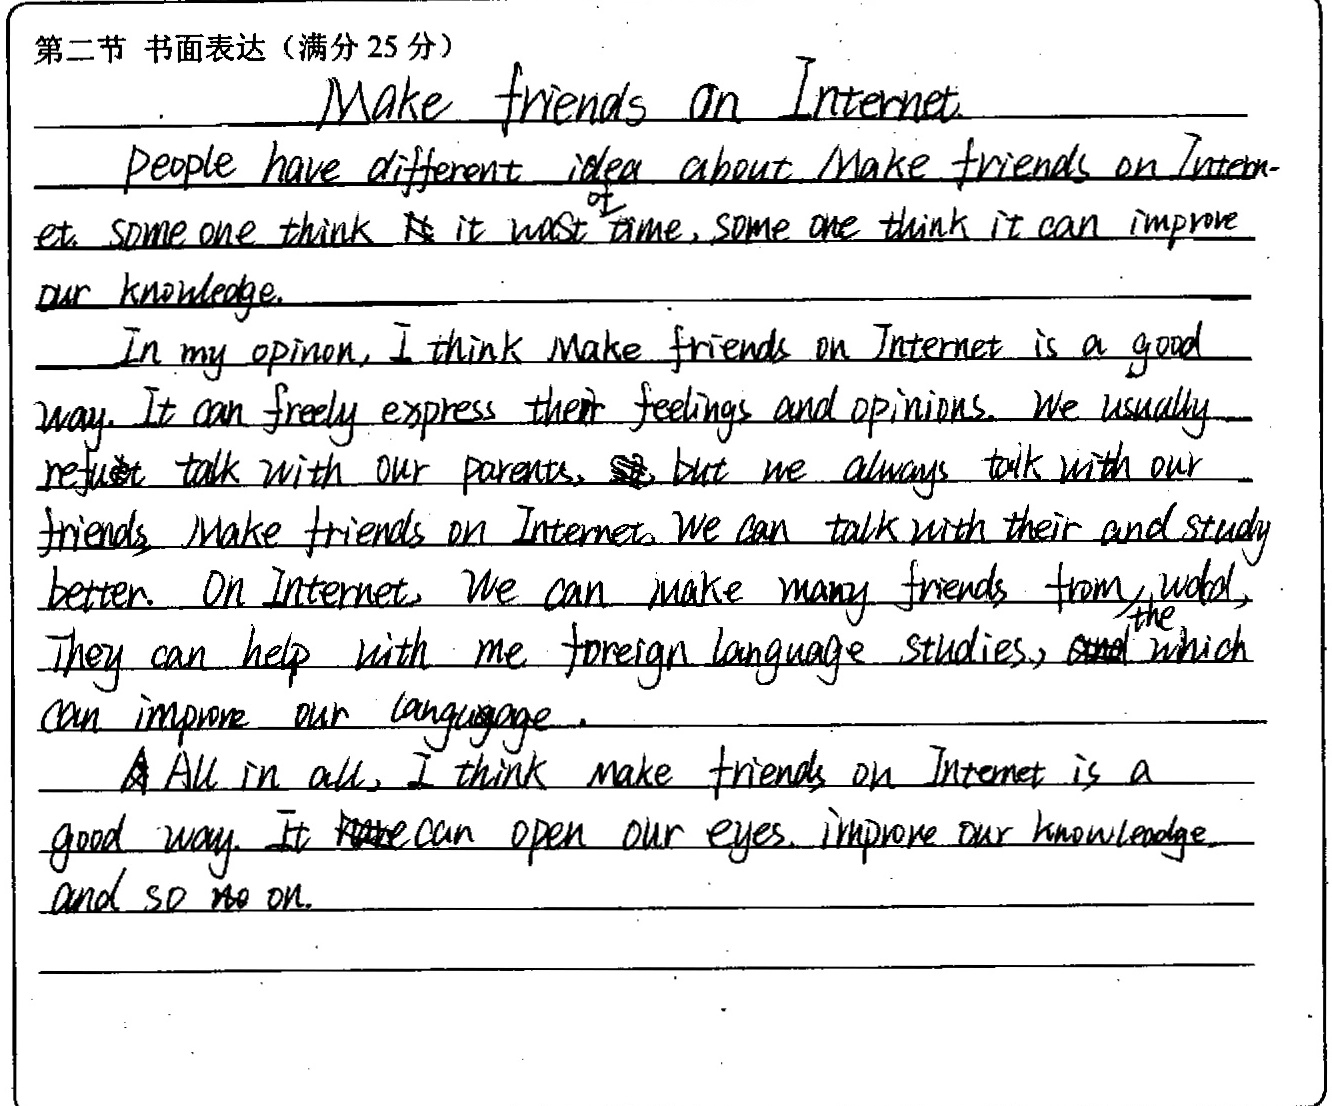 第二节 书面表达（满分 25 分）
Make friends on Internet.
People have different idea about Make friends on Intern-
et. some one think it wast of time, some one think it can improve
our knowledge.
In my opinon, I think Make friends on Internet is a good
way. It can freely express their feelings and opinions. We usually
refust talk with our parents, but we always talk with our
friends, Make friends on Internet. We can talk with their and study
better. On Internet, We can make many friends from the wold,
They can help with me foreign language studies, which
can improve our langugage.
All in all, I think make friends on Internet is a
good way. It can open our eyes. improve our knowleadge
and so on.